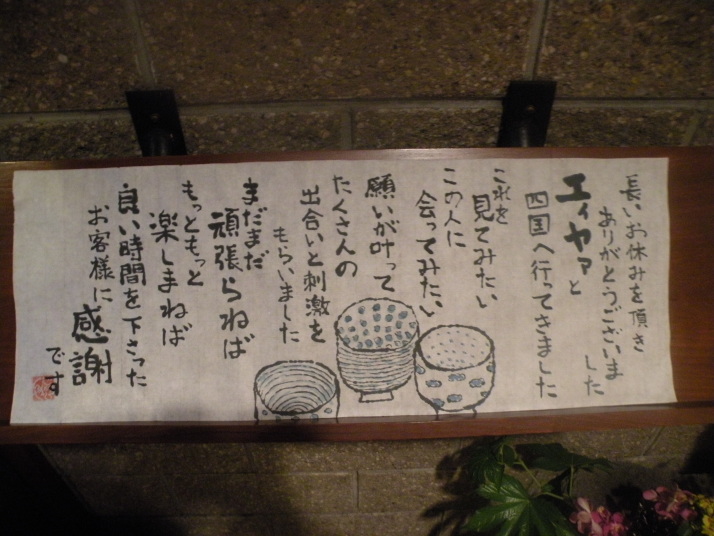 長いお休みを頂き
ありがとうございました
エイヤァと
四国へ行ってきました
これを
見てみたい
この人に
会ってみたい
願いが叶って
たくさんの
出合いと刺激を
もらいました
まだまだ
頑張らねば
もっともっと
楽しまねば
良い時間を下さった
お客様に
感謝
です